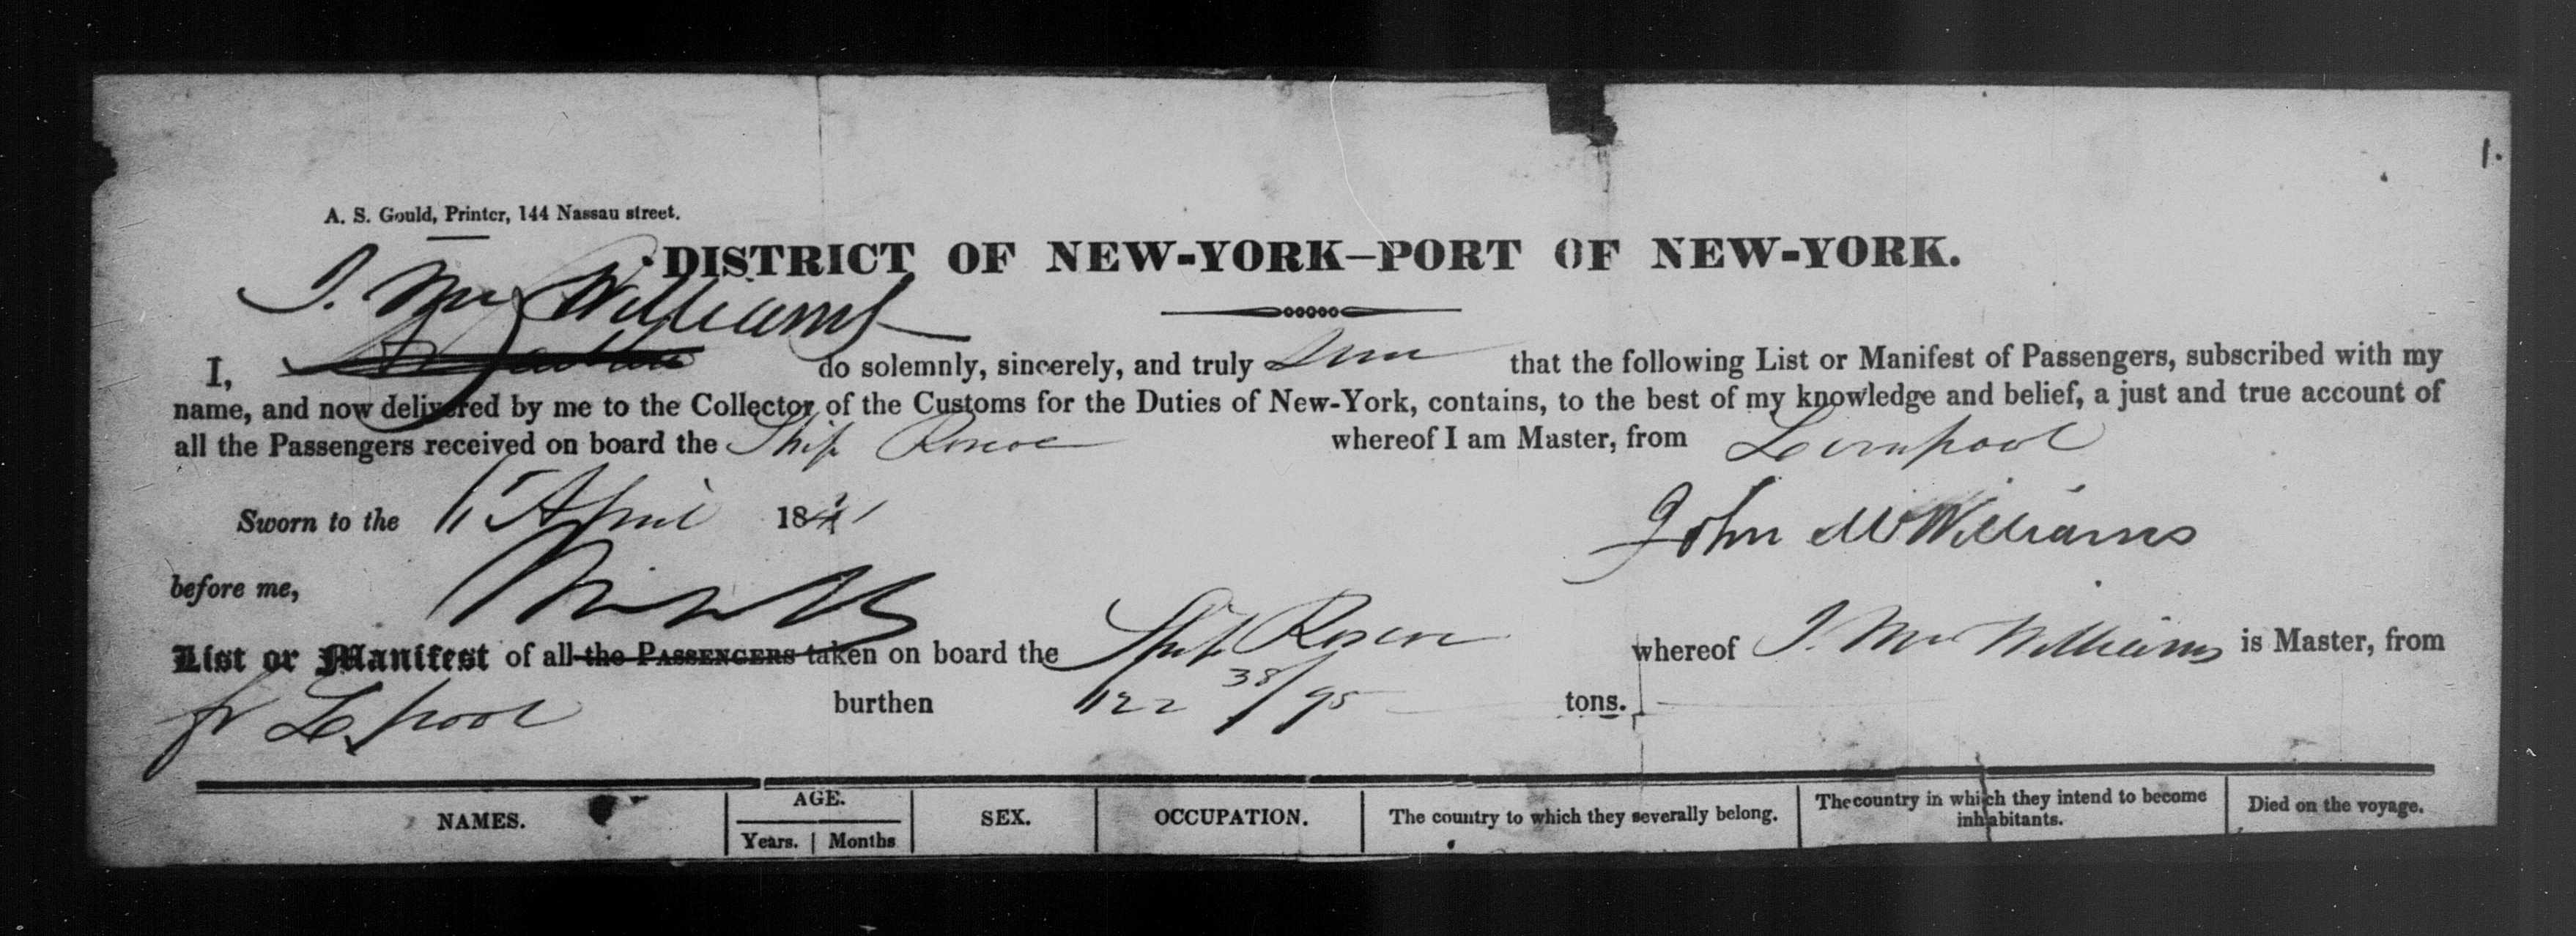 1.
A. S. Gould, Printer, 144 Nassau street.
DISTRICT OF NEW-YORK—PORT OF NEW-YORK.
J. Mc Williams
I, do solemnly, sincerely, and truly that the following List or Manifest of Passengers, subscribed with my
name, and now delivered by me to the Collector of the Customs for the Duties of New-York, contains, to the best of my knowledge and belief, a just and true account of
all the Passengers received on board the Ship Roscoe whereof I am Master, from Liverpool
Sworn to the April 18
John McWilliams
before me,
List or Manifest of all the PASSENGERS taken on board the Ship Roscoe whereof J. Mc Williams is Master, from
fr L.pool burthen 38/95 tons.
NAMES. AGE. SEX. OCCUPATION. The country to which they severally belong. The country in which they intend to become inhabitants. Died on the voyage.
Years. Months